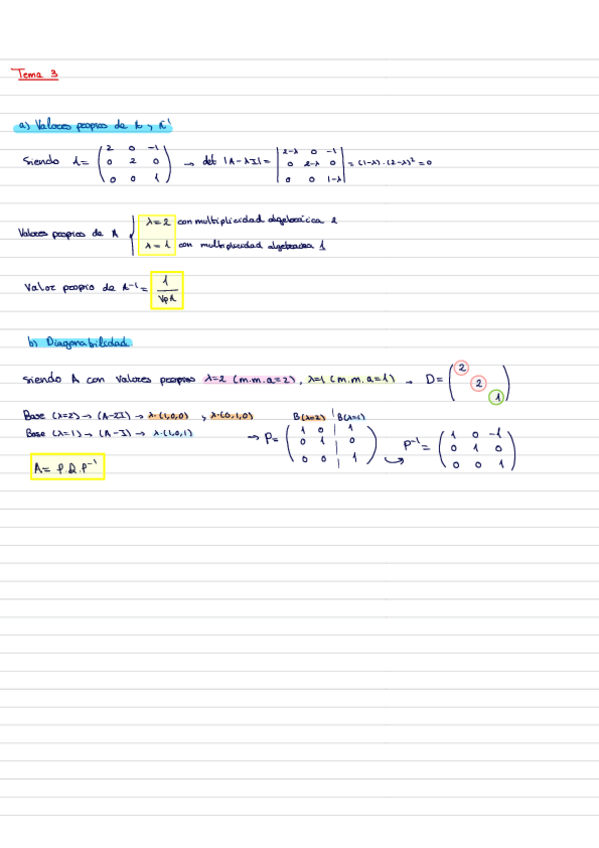 Tema 3
a) Valores propios de A y A⁻¹
Siendo A= ( 2 0 -1 ; 0 2 0 ; 0 0 1 ) → det |A-λI| = | 2-λ 0 -1 ; 0 2-λ 0 ; 0 0 1-λ | = (1-λ)·(2-λ)² = 0
Valores propios de A { λ=2 con multiplicidad algebraica 2
λ=1 con multiplicidad algebraica 1
Valor propio de A⁻¹ = 1 / VpA
b) Diagonabilidad
Siendo A con valores propios λ=2 (m.m.a=2), λ=1 (m.m.a=1) → D= ( 2 2 1 )
Base (λ=2) → (A-2I) → λ·(1,0,0) , λ·(0,1,0)
B(λ=2) | B(λ=1)
Base (λ=1) → (A-I) → λ·(1,0,1)
→ P= ( 1 0 | 1 ; 0 1 | 0 ; 0 0 | 1 ) P⁻¹= ( 1 0 -1 ; 0 1 0 ; 0 0 1 )
A= P.D.P⁻¹